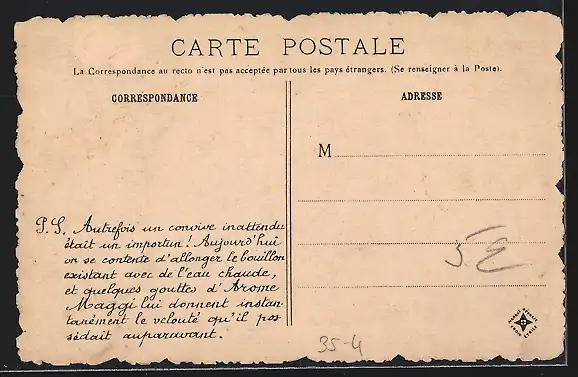 CARTE POSTALE
La Correspondance au recto n'est pas acceptée par tous les pays étrangers. (Se renseigner à la Poste).
CORRESPONDANCE
ADRESSE
M
P.S. Autrefois un convive inattendu
était un importun! Aujourd'hui
on se contente d'allonger le bouillon
existant avec de l'eau chaude,
et quelques gouttes d'Arome
Maggi lui donnent instan-
tanément le velouté qu'il pos-
sédait auparavant.
5 €
35-4